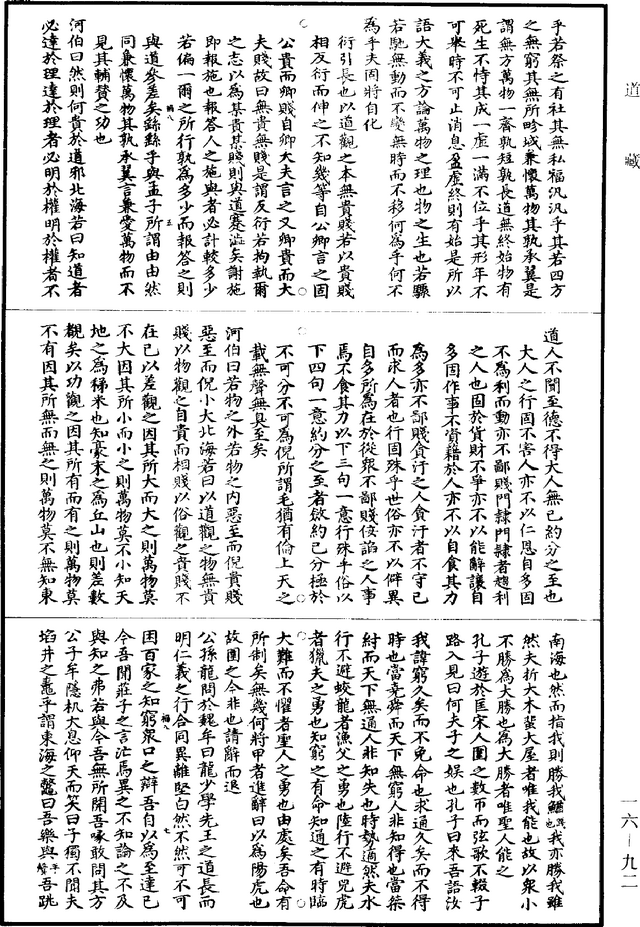 道藏
一六—九二
乎若祭之有社其無私福汎汎乎其若四方
之無窮其無所畛域兼懷萬物其孰承翼是
謂無方萬物一齊孰短孰長道無終始物有
死生不恃其成一虛一滿不位乎其形年不
可舉時不可止消息盈虛終則有始是所以
語大義之方論萬物之理也物之生也若驟
若馳無動而不變無時而不移何為乎何不
為乎夫固將自化
衍引長也以道觀之本無貴賤若以貴賤
相反衍而伸之不知幾等自公卿言之固
公貴而卿賤自卿大夫言之又卿貴而大
夫賤故曰無貴無賤是謂反衍若拘執爾
之志以為某貴某賤則與道蹇澁矣謝施
即報施也報荅人之施與者必計較多少
若偏一爾之所行孰為多少而報荅之則
八 五
與道參差矣繇繇乎與孟子所謂由由然
同兼懷萬物其孰承翼言兼愛萬物而不
見其輔贊之功也
河伯曰然則何貴於道邪北海若曰知道者
必達於理達於理者必明於權明於權者不
道人不聞至德不得大人無已約分之至也
大人之行固不害人亦不以仁恩自多固
不為利而動亦不鄙賤門隸門隸者趨利
之人也固於貨財不爭亦不以能辭讓自
多固作事不資藉於人亦不以自食其力
為多亦不鄙賤貪汙之人貪汙者不守己
而求人者也行固殊乎世俗亦不以僻異
自多所為在於從衆不鄙賤佞諂之人事
焉不食其力以下三句一意行殊乎俗以
下四句一意約分之至者斂約己分極於
不可分不可為倪所謂毛猶有倫上天之
載無聲無臭至矣
河伯曰若物之外若物之內惡至而倪貴賤
惡至而倪小大北海若曰以道觀之物無貴
賤以物觀之自貴而相賤以俗觀之貴賤不
在己以差觀之因其所大而大之則萬物莫
不大因其所小而小之則萬物莫不小知天
地之為稊米也知豪末之為丘山也則差數
覩矣以功觀之因其所有而有之則萬物莫
不有因其所無而無之則萬物莫不無知東
南海也然而指我則勝我我亦勝我雖
然夫折大木蜚大屋者唯我能也故以衆小
不勝為大勝也為大勝者唯聖人能之
孔子遊於匡宋人圍之數帀而弦歌不輟子
路入見曰何夫子之娛也孔子曰來吾語汝
我諱窮久矣而不免命也求通久矣而不得
時也當堯舜而天下無窮人非知得也當桀
紂而天下無通人非知失也時勢適然夫水
行不避蛟龍者漁父之勇也陸行不避兕虎
者獵夫之勇也知窮之有命知通之有時臨
大難而不懼者聖人之勇也由處矣吾命有
所制矣無幾何將甲者進辭曰以為陽虎也
故圍之今非也請辭而退
公孫龍問於魏牟曰龍少學先王之道長而
明仁義之行合同異離堅白然不然可不可
八 七
困百家之知窮衆口之辯吾自以為至達已
今吾聞莊子之言汒焉異之不知論之不及
與知之弗若與今吾無所開吾喙敢問其方
公子牟隱机大息仰天而笑曰子獨不聞夫
埳井之鼃乎謂東海之鱉曰吾樂與平聲吾跳